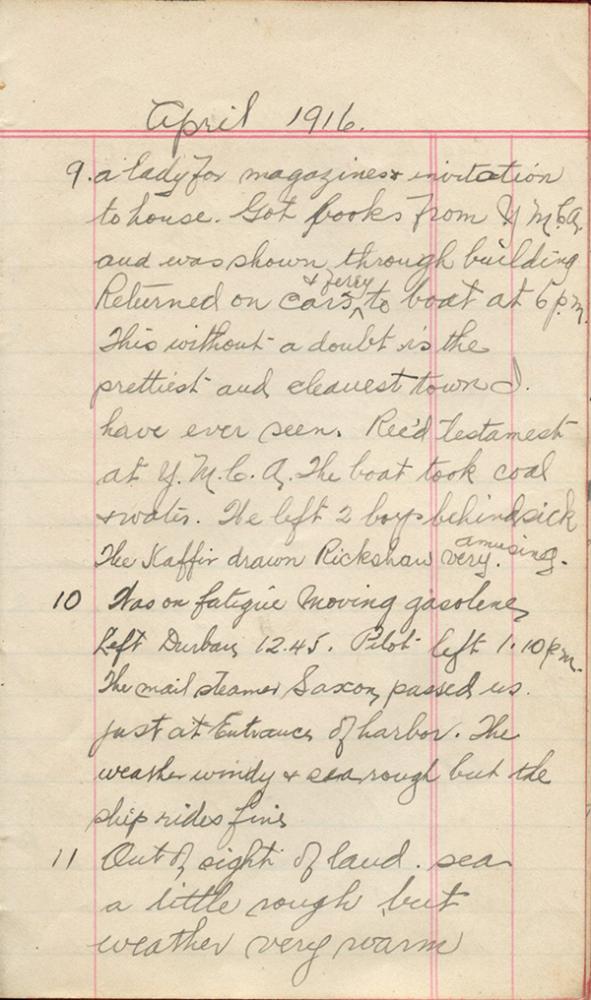 April 1916.
9. a lady for magazines & invitation
to house. Got books from Y M.C.A.
and was shown through building
Returned on cars & ferry to boat at 6 p.m.
This without a doubt is the
prettiest and cleanest town I
have ever seen. Rec'd testament
at Y.M.C.A. The boat took coal
& water. We left 2 boys behind sick
The Kaffir drawn Rickshaw very amusing.
10 Was on fatigue moving gasolene
Left Durban 12.45. Pilot left 1.10 p.m.
The mail steamer Saxon passed us
just at Entrance of harbor. The
weather windy & sea rough but the
ship rides fine
11 Out of sight of land. sea
a little rough but
weather very warm